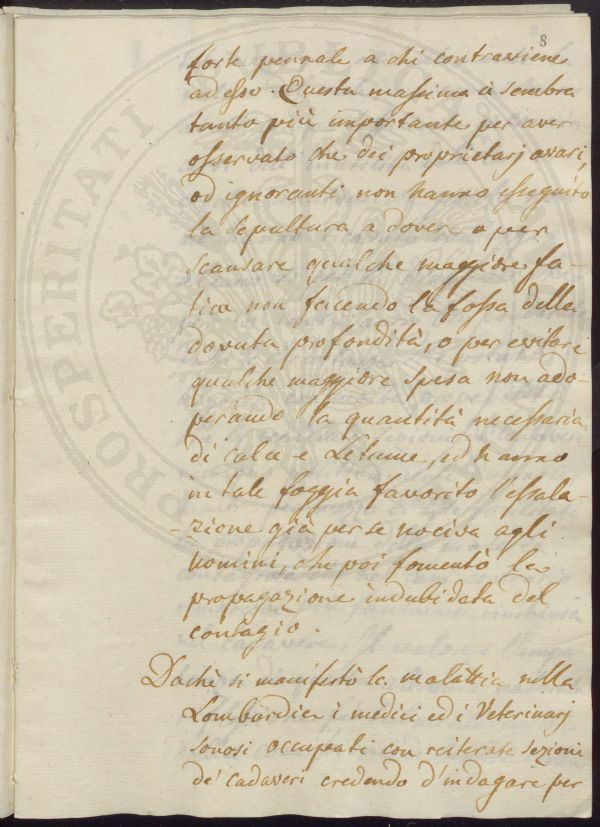 8
forte pennale a chi contraviene
ad esso. Questa massima è sembra
tanto più importante per aver
osservato che dei proprietarj avari,
od ignoranti non hanno esseguito
la sepultura a dovere o per
scansare qualche maggiore fa-
tica non facendo la fossa della
dovuta profondità, o per evitare
qualche maggiore spesa non ado-
perando la quantità necessaria
di calce e Letame, ed hanno
in tale foggia favorito l'essala-
-zione già per se nociva agli
uomini, che poi fomentò la
propagazione indubidata del
contagio.
Dachè si manifestò la malattia nella
Lombardia i medici ed i Veterinarj
sonosi occupati con reiterate sezioni
de' cadaveri credendo d'indagare per
PROSPERITATI